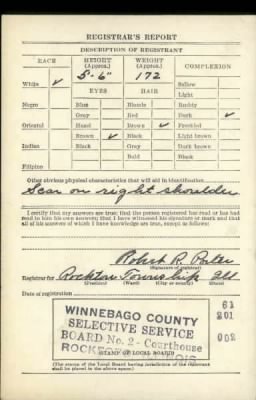 REGISTRAR'S REPORT
DESCRIPTION OF REGISTRANT
RACE HEIGHT (Approx.) WEIGHT (Approx.) COMPLEXION
White ✓ 5-6" 172 Sallow
Light
EYES HAIR
Negro Blue Blonde Ruddy
Gray Red Dark ✓
Oriental Hazel Brown ✓ Freckled
Brown ✓ Black Light brown
Indian Black Gray Dark brown
Bald Black
Filipino
Other obvious physical characteristics that will aid in identification
Scar on right shoulder
I certify that my answers are true; that the person registered has read or has had
read to him his own answers; that I have witnessed his signature or mark and that
all of his answers of which I have knowledge are true, except as follows:
Robert R. Porter
(Signature of registrar)
Registrar for Rockton Township Ill
(Precinct) (Ward) (City or county) (State)
Date of registration
WINNEBAGO COUNTY 61
SELECTIVE SERVICE 201
BOARD No. 2 - Courthouse 002
STAMP OF LOCAL BOARD
(The stamp of the Local Board having jurisdiction of the registrant
shall be placed in the above space.)